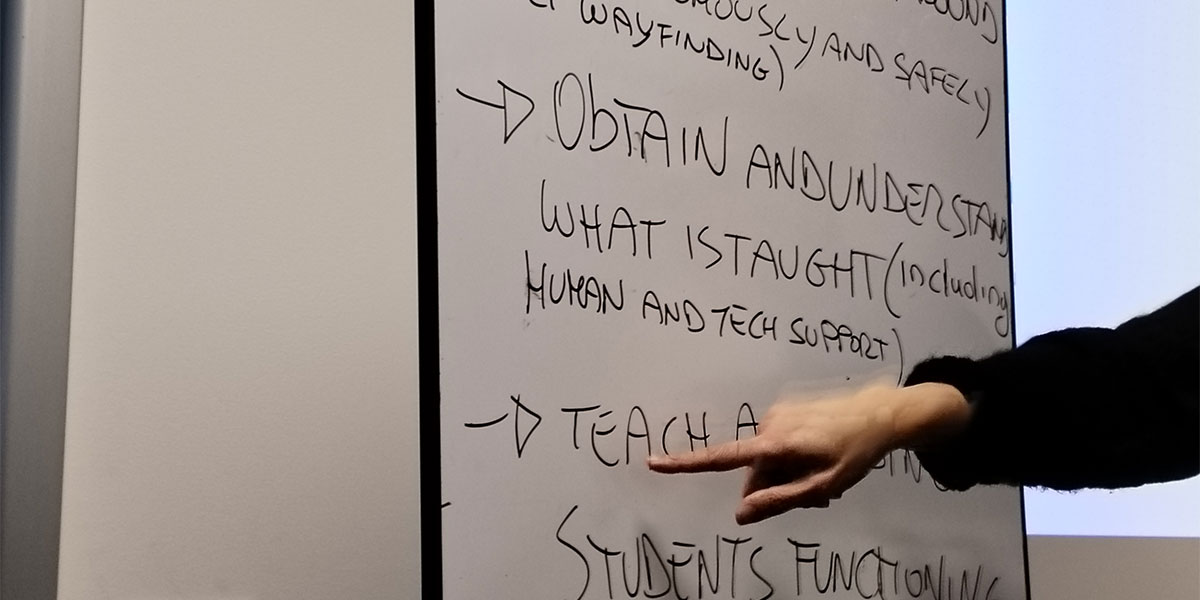 WAYFINDING) AND SAFELY
→ ObTAIN AND UNDERSTAND
WHAT IS TAUGHT (including
HUMAN AND TECH SUPPORT)
→ TEACH
STUDENTS FUNCTIONING